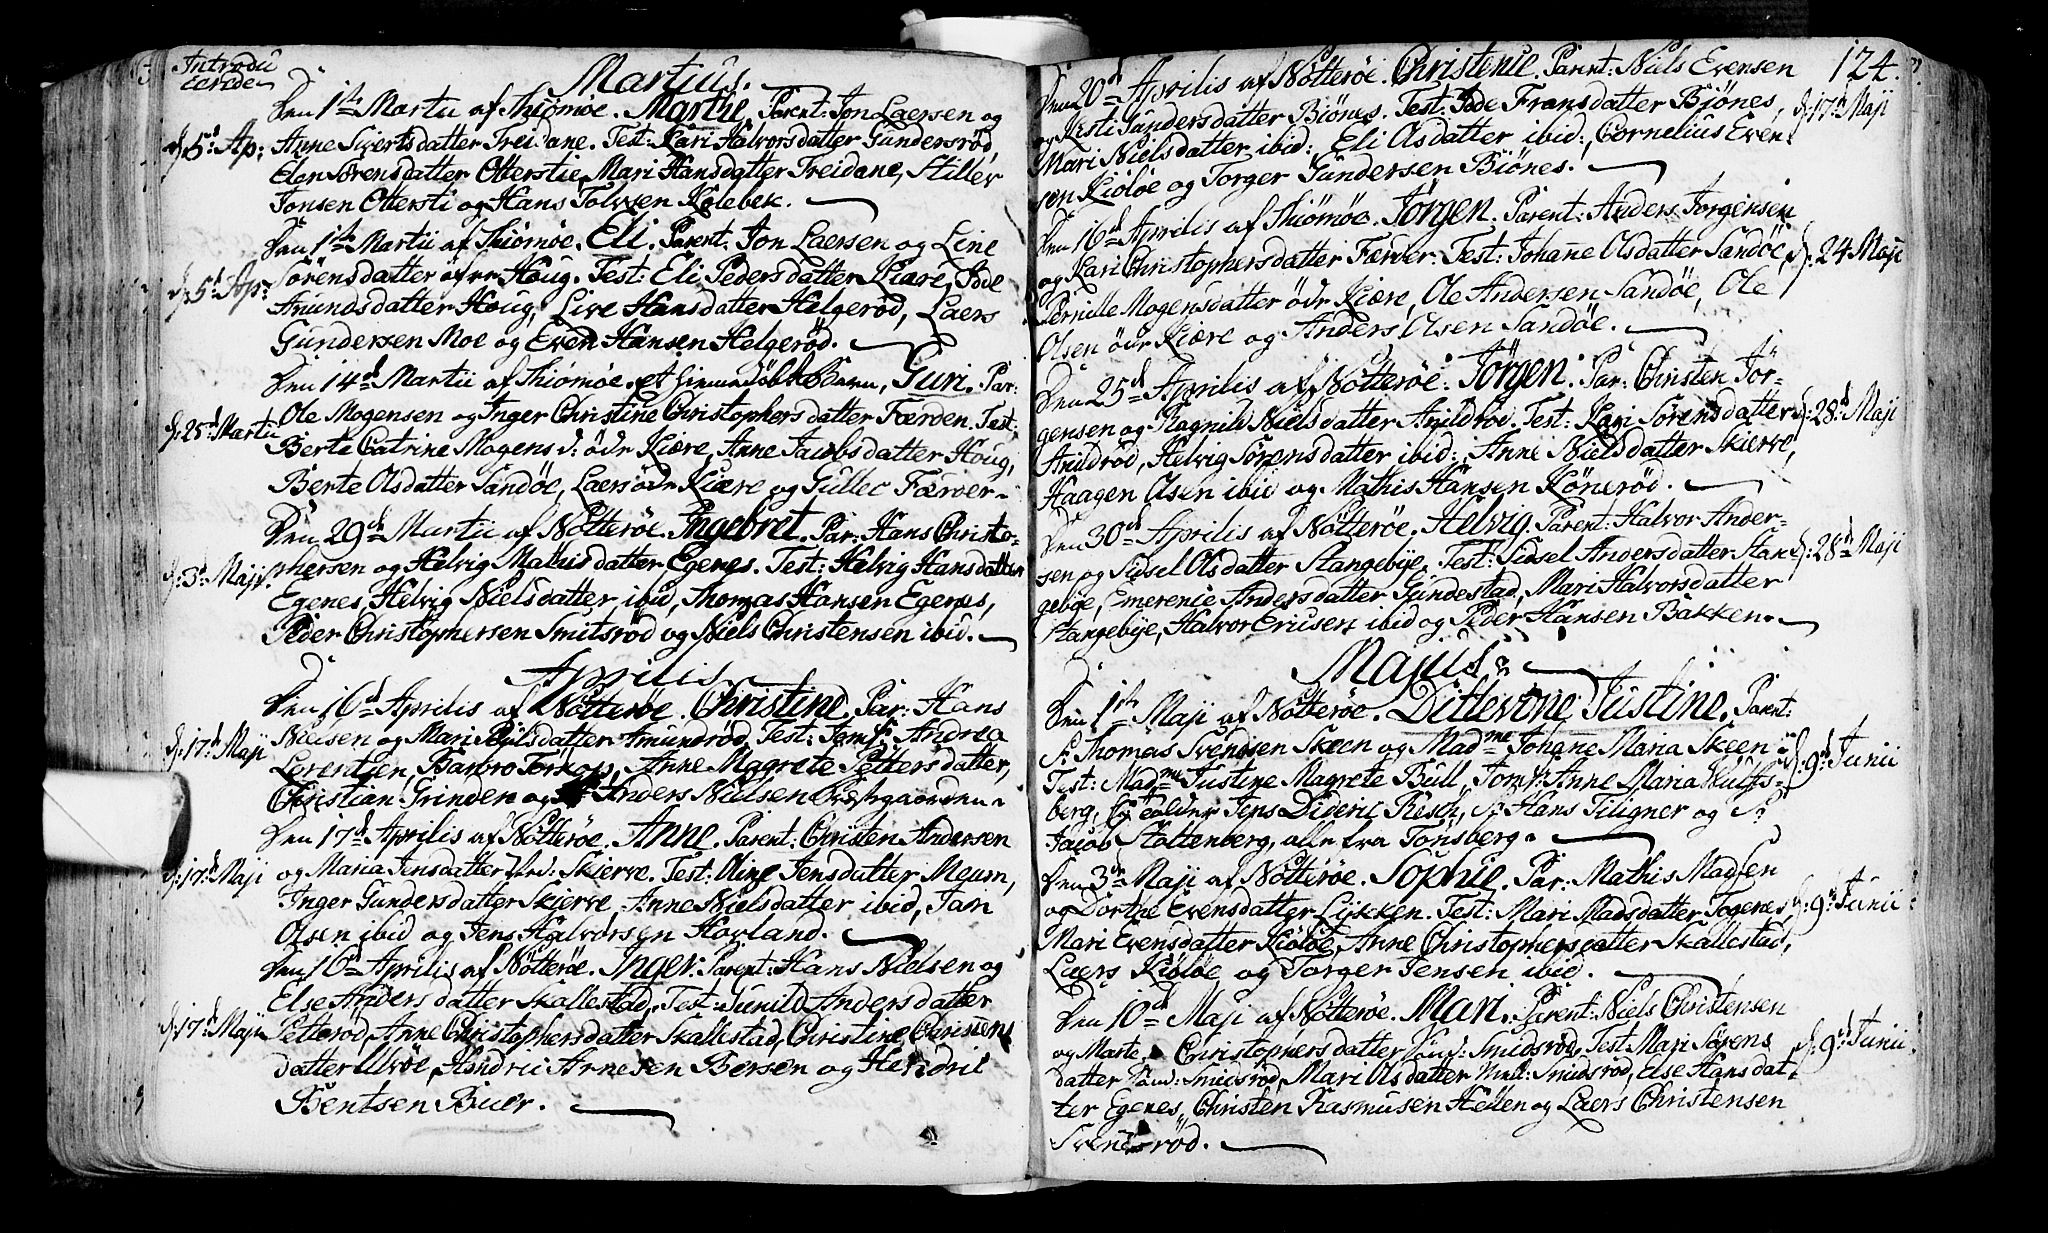 Introdu
cerede
Martius.
Den 1te Martii af Thiömöe. Marthe, Parent: Jon Laersen og
d: 5t Ap: Anne Sivertsdatter Treidane. Test: Kari Halvorsdatter Gundersröd,
Elen Sörensdatter Otterstie, Mari Hansdatter Treidane, Stiller
Jonsen Ottersti og Hans Tolvsen Kolebek.
Den 1te Martii af Thiömöe. Eli. Parent: Jon Laersen og Line
d: 5t Ap: Sörensdatter öfvr Houg. Test: Eli Pedersdatter Kiære, Jode
Amundsdatter Houg, Live Hansdatter Helgeröd, Laers
Gundersen Moe og Even Hansen Helgeröd.
Den 14de Martii af Thiömöe. et hiemmedöbt Barn, Guri. Par:
d: 25t Martii Ole Mogensen og Inger Christine Christophersdatter Færden. Test:
Berte Catrine Mogens d: övr Kiære, Anne Jacobsdatter Houg,
Berte Olsdatter Sandöe, Laers övr Kiære og Gullec Færder.
Den 29de Martii af Nötteröe. Ingebret. Par: Hans Christo-
d: 3t Maji. phersen og Helvig Mathisdatter Egenes. Test: Helvig Hansdatter
Egenes, Helvig Nielsdatter ibid, Thomas Hansen Egenes,
Peder Christophersen Smitsröd og Niels Christensen ibid.
Aprilis
Den 16de Aprilis af Nötteröe. Christine, Par: Hans
d: 17t Maji Nielsen og Mari Nilsdatter Amundröd, Test: Jomfr: Andrea
Lorentsen, Barbro Torkop, Anne Magrete Pettersdatter,
Christian Grinden og Anders Nielsen Præstgaarden.
Den 17de Aprilis af Nötteröe. Anne. Parent: Christen Andersen
d: 17t Maji og Maria Jensdatter Skierve. Test: Jensdatter Meum,
Inger Gundersdatter Skierve, Anne Nielsdatter ibid, Jan
Olsen ibid og Jens Halvorsen Hovland.
Den 10de Aprilis af Nötteröe. Inger. Parent: Hans Nielsen og
Else Andersdatter Skallestad, Test: Gunild Andersdatter
d: 17t Maji Petteröd, Anne Christophersdatter Skallestad, Christine Christens
datter Ulvöe, Hendric Arnesen Bersen og Hendric
Bentsen Buer.
124.
Den 20de Aprilis af Nötteröe. Christenie. Parent: Niels Evensen
og Kirsti Gundersdatter Biönes. Test: Jode Fransdatter Biönes, d: 17t Maji
Mari Nielsdatter ibid:, Eli Olsdatter ibid:, Cornelius Even-
sen Kiölöe og Torger Gundersen Biönes.
Den 16de Aprilis af Thiömöe. Jörgen. Parent: Anders Jörgensen
og Kari Christophersdatter Færder. Test: Johane Olsdatter Sandöe, d: 24 Maji
Pernille Mogensdatter övr Kiære, Ole Andersen Sandöe, Ole
Olsen övr Kiære og Anders Olsen Sandöe.
Den 25de Aprilis af Nötteröe. Jörgen. Par: Christen Jör-
gensen og Ragnild Nielsdatter Arildröd. Test: Kari Sörensdatter d: 28t Maji
Arildröd, Helvig Sörensdatter ibid:, Anne Nielsdatter Skierve,
Haagen Olsen ibid og Mathis Hansen Köneröd.
Den 30de Aprilis af Nötteröe. Helvig. Parent: Halvor Ander-
sen og Sidsel Olsdatter Stangebye, Test: Sidsel Andersdatter Stan- d: 28t Maji
gebye, Emerencie Andersdatter Gundestad, Mari Halvorsdatter
Stangebye, Halvor Ericsen ibid og Peder Hansen Bakken.
Majus.
Den 1te Maji af Nötteröe. Ditlevine Justine. Parent:
Sr Thomas Svendsen Skeen og Madme Johane Maria Skeen d: 9de Junii
Test: Madme Justine Magrete Bull, Jomfr: Anne Maria
berg, Jens Dideric Resch, Sr Hans Tiligner og Sr
Jacob Stoltenberg, alle fra Tonsberg.
Den 3de Maji af Nötteröe. Sophie. Par: Mathis Madsen
og Dorthe Evensdatter Lykken. Test: Mari Madsdatter Togenes, d: 9de Junii
Mari Evensdatter Kiölöe, Anne Christophersdatter Skallestad,
Laers Kiölöe og Torger Jensen ibid.
Den 10de Maji af Nötteröe. Mari. Parent: Niels Christensen
og Marte Christophersdatter Smidsröd, Test: Mari Sörens d: 9de Junii
datter Smidsröd, Mari Olsdatter Smidsröd, Else Hansdat-
ter Egenes, Christen Rasmusen Hellen og Laers Christensen
Svendsröd.